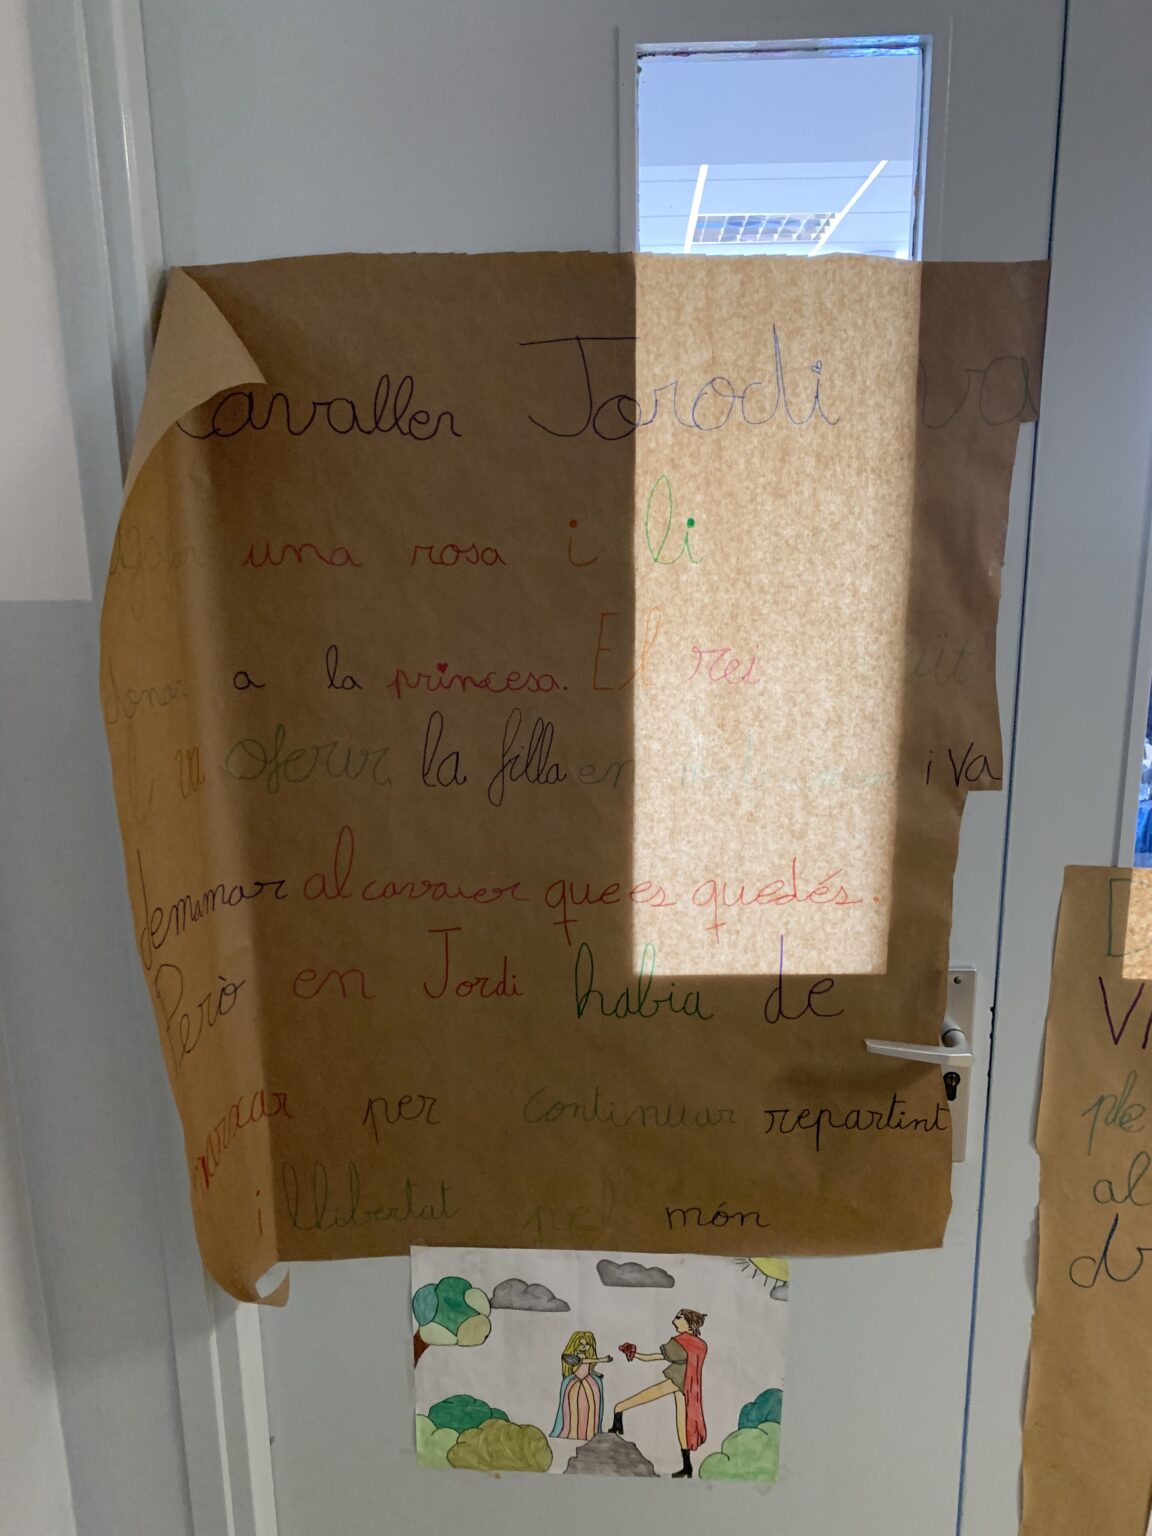 Cavaller Jorodi va
agafar una rosa i li
donar a la princesa. El rei
li va oferir la filla en matrimoni i va
demamar al cavaier que es quedés.
Però en Jordi habia de
marxar per continuar repartint
i llibertat pel món
VI
ple
al
dr